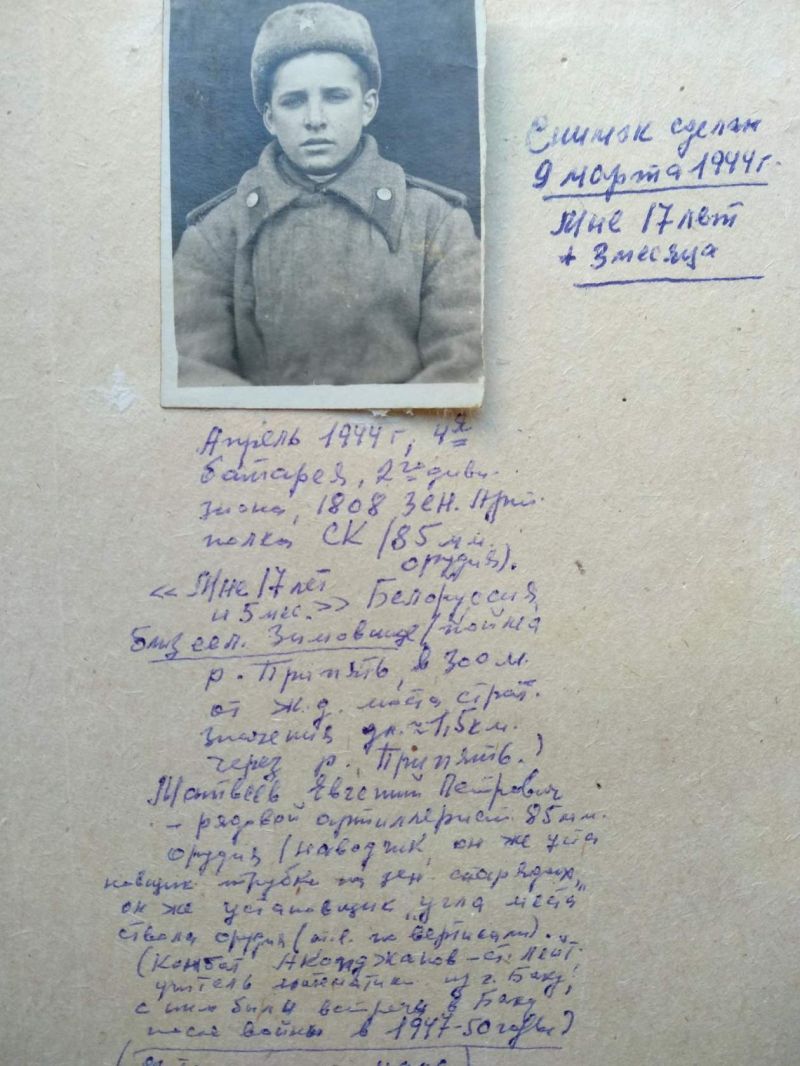 Снимок сделан
9 марта 1944 г.
Мне 17 лет
+ 3 месяца
Апрель 1944 г, 4я
батарея, 2го диви-
зиона, 1808 Зен. Арт.
полка СК (85 мм.
орудия).
«Мне 17 лет
и 5 мес.» Белоруссия
близ сел. Зимовище (пойма
р. Припять, в 300 м.
от ж.д. моста страт.
значения дл. ≈ 1,5 км.
через р. Припять.)
Матвеев Евгений Петрович
– рядовой артиллерист 85 мм.
орудия (наводчик, он же уста
новщик трубки на зен. снарядах,
он же установщик „угла места"
ствола орудия (т.е. по вертикали).
(Комбат – ст. лейт.
учитель математики из г. Баку,
с ним были встречи в Баку
после войны в 1947-50 годы)